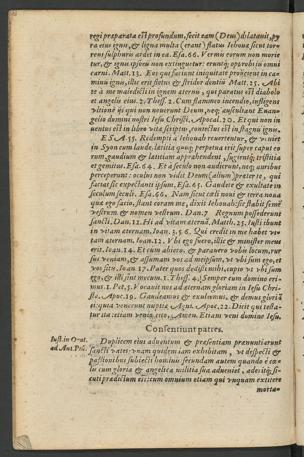 regi præparata est profundum, fecit eam (Deus) dilatauit, py
ra eius ignis, & ligna multa (erant) flatus Iehouæ sicut tor-
rens sulphuris ardet in ea. Esa. 66. Vermis eorum non morie
tur, & ignis ipsorũ non extinguetur: eruntq; opprobriũ omni
carni. Matt. 13. Eos qui faciunt iniquitatẽ proijcient in ca-
minũ ignis, illic erit fletus & stridor dentiũ Matt. 25. Abi
te à me maledicti in ignem æternũ, qui paratus est diabolo
et angelis eius. 2. Thess. 2. Cum flammeo incendio, infligens
vltionẽ ijs qui non nouerunt Deum, neq; auscultant Euan-
gelio domini nostri Iesu Christi. Apocal. 20. Et qui non in
uentus est in libro vitæ scriptus, coniectus est in stagnũ ignis.
ESA. 35. Redempti à Iehouah reuertentur, & veniet
in Syon cum laude, lætitia quoq; perpetua erit super caput eo
rum, gaudium & lætitiam apprehendent, fugientq; tristitia
et gemitus. Esa. 64. Et à seculo non audierunt, neq; auribus
perceperunt: oculus non vidit Deum (alium) præter te, qui
facias sic expectanti ipsum. Esa. 65. Gaudete & exultate in
seculum seculi. Esa. 66. Nam sicut cæli noui & terra noua
quæ ego facio, stant coram me, dixit Iehouah: sic stabit semẽ
vestrum & nomen vestrum. Dan. 7 Regnum possiderunt
sancti. Dan. 12. Hi ad vitam æternã. Matth. 25. Iusti ibunt
in vitam æternam. Ioan. 3. 5. 6. Qui credit in me habet vi-
tam æternam. Ioan. 12. Vbi ego fuero, illic & minister meus
erit. Ioan. 14. Et cum abiero, & parauero vobis locum, rur
sus veniam, & assumam vos ad meipsum, vt vbi sum ego, et
vos sitis. Ioan 17. Pater quos dedisti mihi, cupio vt vbi sum
ego, & illi sint mecum. 1. Thess. 4. Semper cum domino eri-
mus. 1. Pet. 5. Vocauit nos ad æternam gloriam in Iesu Chri-
sto. Apoc. 19. Gaudeamus & exultemus, & demus gloriã
ei: quia venerunt nuptiæ Agni. Apoc. 22. Dicit qui testa-
tur ista: etiam venio cito, Amen. Etiam veni domine Iesu.
Consentiunt patres.
Iust. in Orat. Duplicem eius aduentum & præsentiam prænuntiarunt
ad Ant. Piũ. sancti vates: vnam quidem iam exhibitam, vt despecti &
passionibus subiecti hominis: secundam autem quando è cœ-
lis cum gloria & angelica militia sua adueniet, adeò itaq; si-
cuti prædictum est: cum omnium etiam qui vnquam extitere
morta-